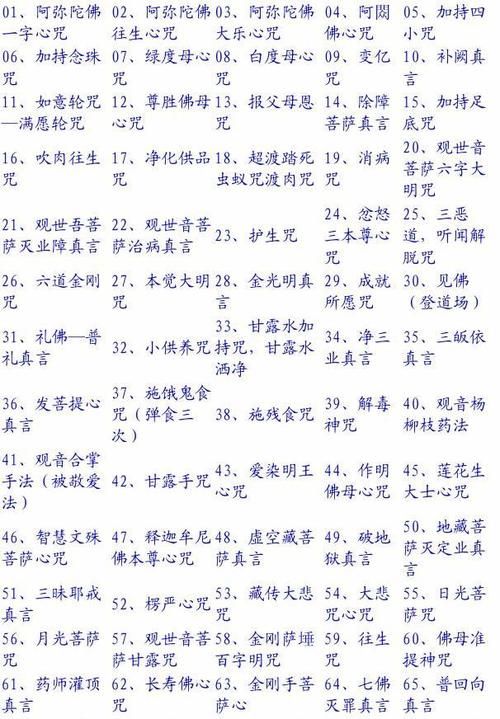 01、阿弥陀佛一字心咒
02、阿弥陀佛往生心咒
03、阿弥陀佛大乐心咒
04、阿閦佛心咒
05、加持四小咒
06、加持念珠咒
07、绿度母心咒
08、白度母心咒
09、变化咒
10、补阙真言
11、如意轮咒—满愿轮咒
12、尊胜佛母心咒
13、报父母恩咒
14、除障菩萨真言
15、加持足底咒
16、吹肉往生咒
17、净化供品咒
18、超渡踏死虫蚁咒渡肉咒
19、消病咒
20、观世音菩萨六字大明咒
21、观世吾菩萨灭业障真言
22、观世音菩萨治病真言
23、护生咒
24、忿怒三本尊心咒
25、三恶道，听闻解脱咒
26、六道金刚咒
27、本觉大明咒
28、金光明真言
29、成就所愿咒
30、见佛（登道场）
31、礼佛—普礼真言
32、小供养咒
33、甘露水加持咒，甘露水洒净
34、净三业真言
35、三皈依真言
36、发菩提心真言
37、施饿鬼食咒（弹食三次）
38、施残食咒
39、解毒神咒
40、观音杨柳枝药法
41、观音合掌手法（被敬爱法）
42、甘露手咒
43、爱染明王心咒
44、作明佛母心咒
45、莲花生大士心咒
46、智慧文殊菩萨心咒
47、释迦牟尼佛本尊心咒
48、虚空藏菩萨真言
49、破地狱真言
50、地藏菩萨灭定业真言
51、三昧耶戒真言
52、楞严心咒
53、藏传大悲咒
54、大悲咒心咒
55、日光菩萨咒
56、月光菩萨咒
57、观世音菩萨甘露咒
58、金刚萨埵百字明咒
59、往生咒
60、佛母准提神咒
61、药师灌顶真言
62、长寿佛心咒
63、金刚手菩萨心
64、七佛灭罪真言
65、普回向真言